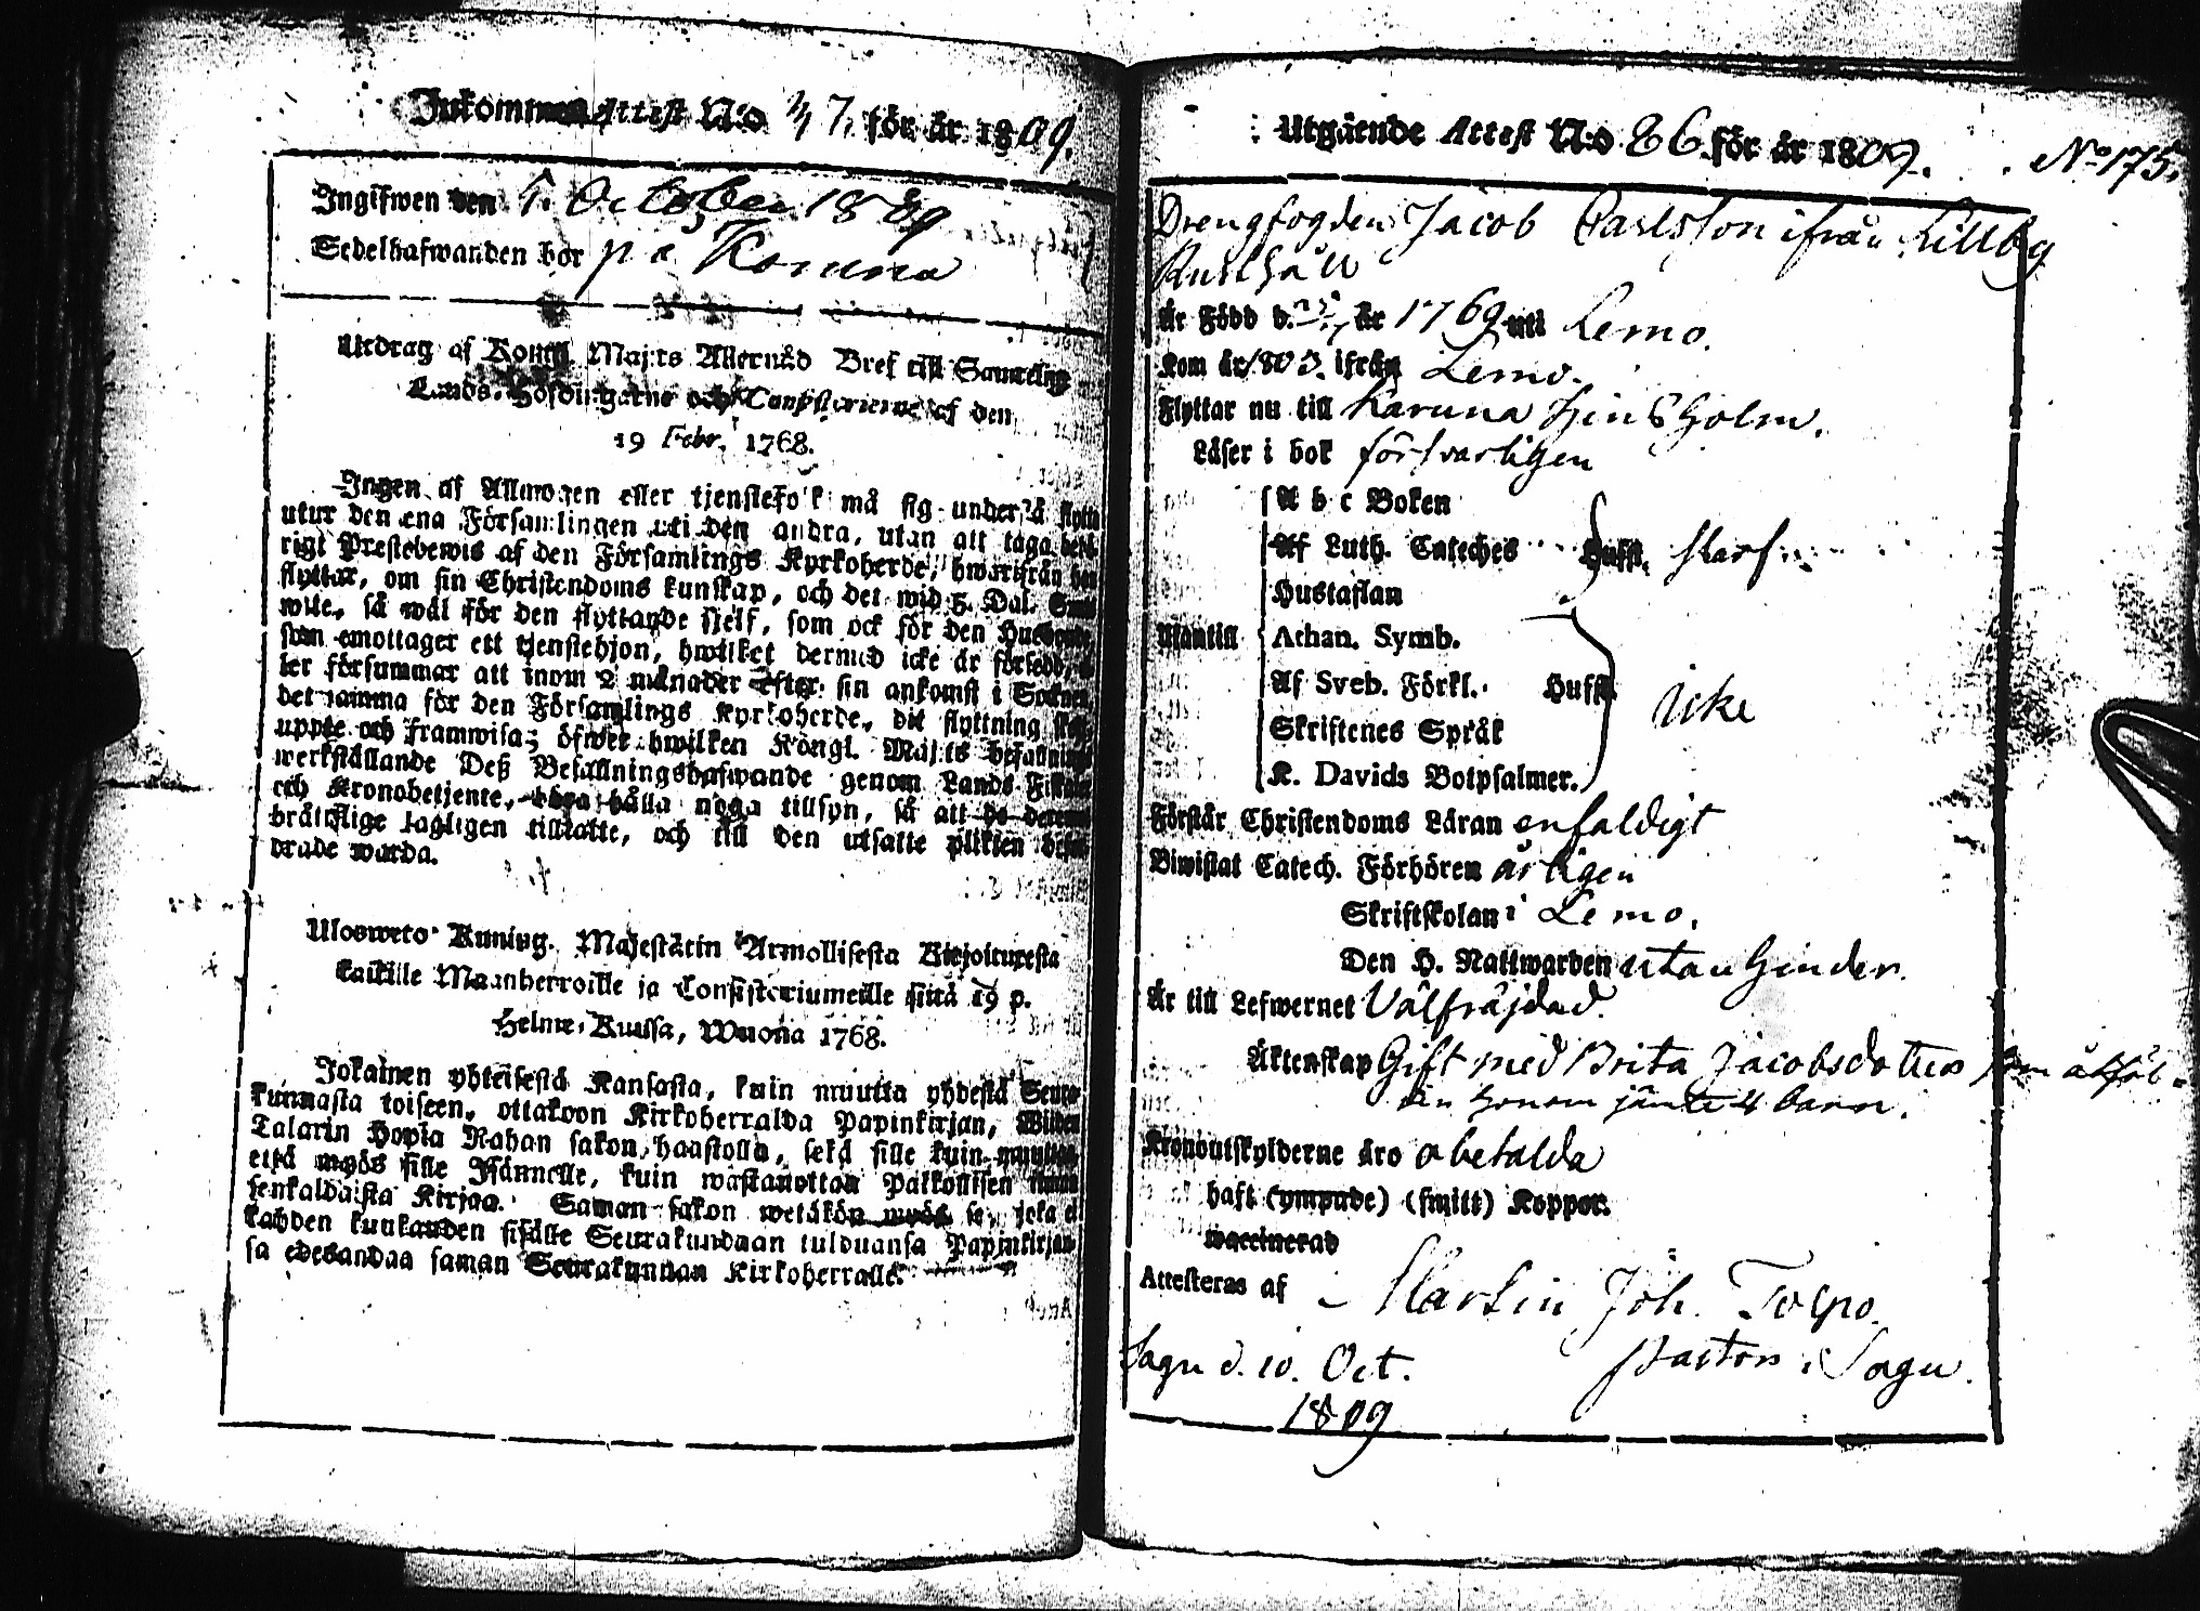 Inkommen Attest N:o 47. för år 1809.
Ingifwen den October 1809
Sedelhafwanden bor på Karuna
Utdrag af Kongl. Maj:ts Allernåd Bref till Samtelige
Lands-Höfdingarne och Consistorierne af den
19 Febr. 1768.
Ingen af Allmogen eller tjenstefolk må sig understå flytta
utur den ena Församlingen uti den andra, utan att taga behö-
rigt Prestebewis af den Församlings Kyrkoherde, hwarifrån han
flyttar, om sin Christendoms kunskap, och det wid 5. Dal. Smt
wite, så wäl för den flyttande sjelf, som ock för den Husbonde,
som emottager ett tjenstehjon, hwilket dermed icke är försedd, el-
ler försummar att inom 2 månader efter sin ankomst i Socknen,
det samma för den Församlings Kyrkoherde, dit flyttning sker,
uppte och framwisa; öfwer hwilken Köngl. Maj:ts befallnings
werkställande Deß Befallningshafwande genom Lands Fiskaler
och Kronobetjente, böra hålla noga tillsyn, så att de deremot
bråttslige lagligen tilltalte, och till den utsatte plikten befor-
drade warda.
Ulosweto Kuning. Majestätin Armollisesta Kirjoituresta
kaikille Maanherroille ja Consistoriumeille siitä 19 p.
Helme-Kuussa, Wuonna 1768.
Jokainen yhteisestä Kansasta, kuin muutta yhdestä Seura-
kunnasta toiseen, ottakoon Kirkoherralda Papinkirjan, Wiiden
Talarin Hopia Rahan sakon haastolla, sekä sille kuin muuttaa
että myös sille Isännelle, kuin wastanottaa Palkollisen ilman
senkaldaista Kirjaa. Saman sakon wetäkön myös se, joka ei
kahden kuukauden sisälle Seurakundaan tulduansa Papinkirjan-
sa edesandaa saman Seurakunnan Kirkoherralle.
Utgående Attest N:o 86 för år 1809. No 175.
Drengfogden Jacob Carlsson ifrån Lillby
Rusthåll
Är Född d. år 1769 uti Lemo.
Kom år 1805. ifrån Lemo.
Flyttar nu till Karuna Hinsholm.
Läser i bok försvarligen
A b c Boken
Af Luth. Cateches Huffs.
Hustaflan
Utantill Athan. Symb.
Af Sveb. Förkl. Huffs. icke
Skriftenes Språk
K. Davids Botpsalmer.
Förstår Christendoms Läran enfaldigt
Biwistat Catech. Förhören årligen
Skriftskolan i Lemo.
Den H. Nattwarden utan hinder.
Är till Lefwernet Välfräjdad.
Äktenskap Gift med Brita Jacobsdotter som åtföl-
jer honom jämte 4 barn.
Kronoutskylderne äro obetalda
haft (ympade) (smitt) Koppor.
waccinerad
Attesteras af Martin Joh. Tolpo.
Sagu d. 10. Oct. Pastor i Sagu.
1809